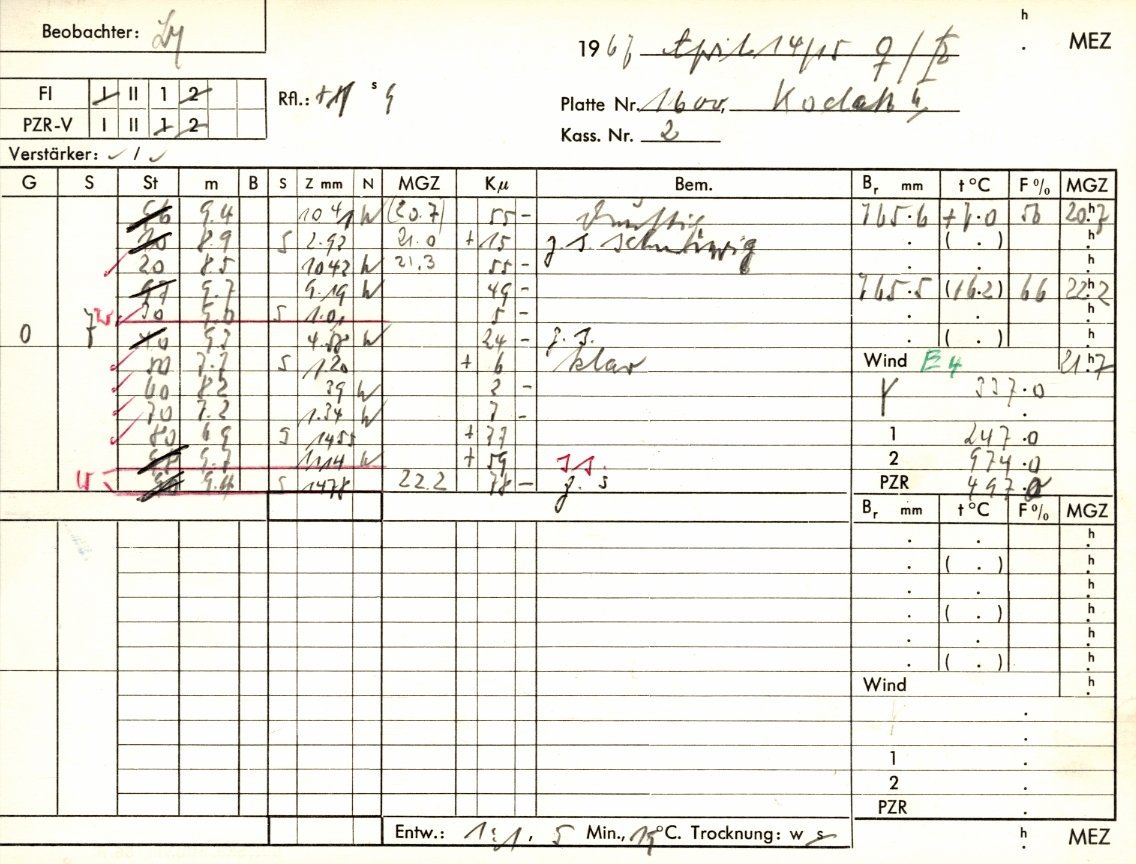 Beobachter:
h
1967 April 14/15
. MEZ
FI I II 1 2
Rfl.: s
PZR-V I II 1 2
Platte Nr. 1600, Kodak
Kass. Nr. 2
Verstärker: ✓ / ✓
G S St m B S Z mm N MGZ Kμ Bem. Br mm t °C F % MGZ
9.4 1041 N (20.7) 55 - dunstig 765.6 +7.0 56 20.h7
8.9 S 2.92 21.0 + 15 z. s. . ( . ) h.
20 8.5 1042 N 21.3 55 - . . h.
9.7 9.19 N 49 - 765.5 (16.2) 66 22.h2
30 S 1.01 5 - . . h.
0 7 4.58 N 24 - z. s. . ( . ) h.
50 7.7 S 1.20 + 6 klar Wind E 4 21.h7
60 8.2 39 N 2 - γ 337.0
70 7.2 1.34 N 7 - .
80 6.9 S 1455 + 77 1 247.0
9.7 1114 N + 59 2 974.0
9.4 S 1478 22.2 78 - z. s PZR 497.0
Br mm t °C F % MGZ
. . h.
. ( . ) h.
. . h.
. ( . ) h.
. . h.
. ( . ) h.
Wind h.
.
.
1 .
2 .
PZR .
Entw.: 1:1, 5 Min., °C. Trocknung: w s
h
. MEZ